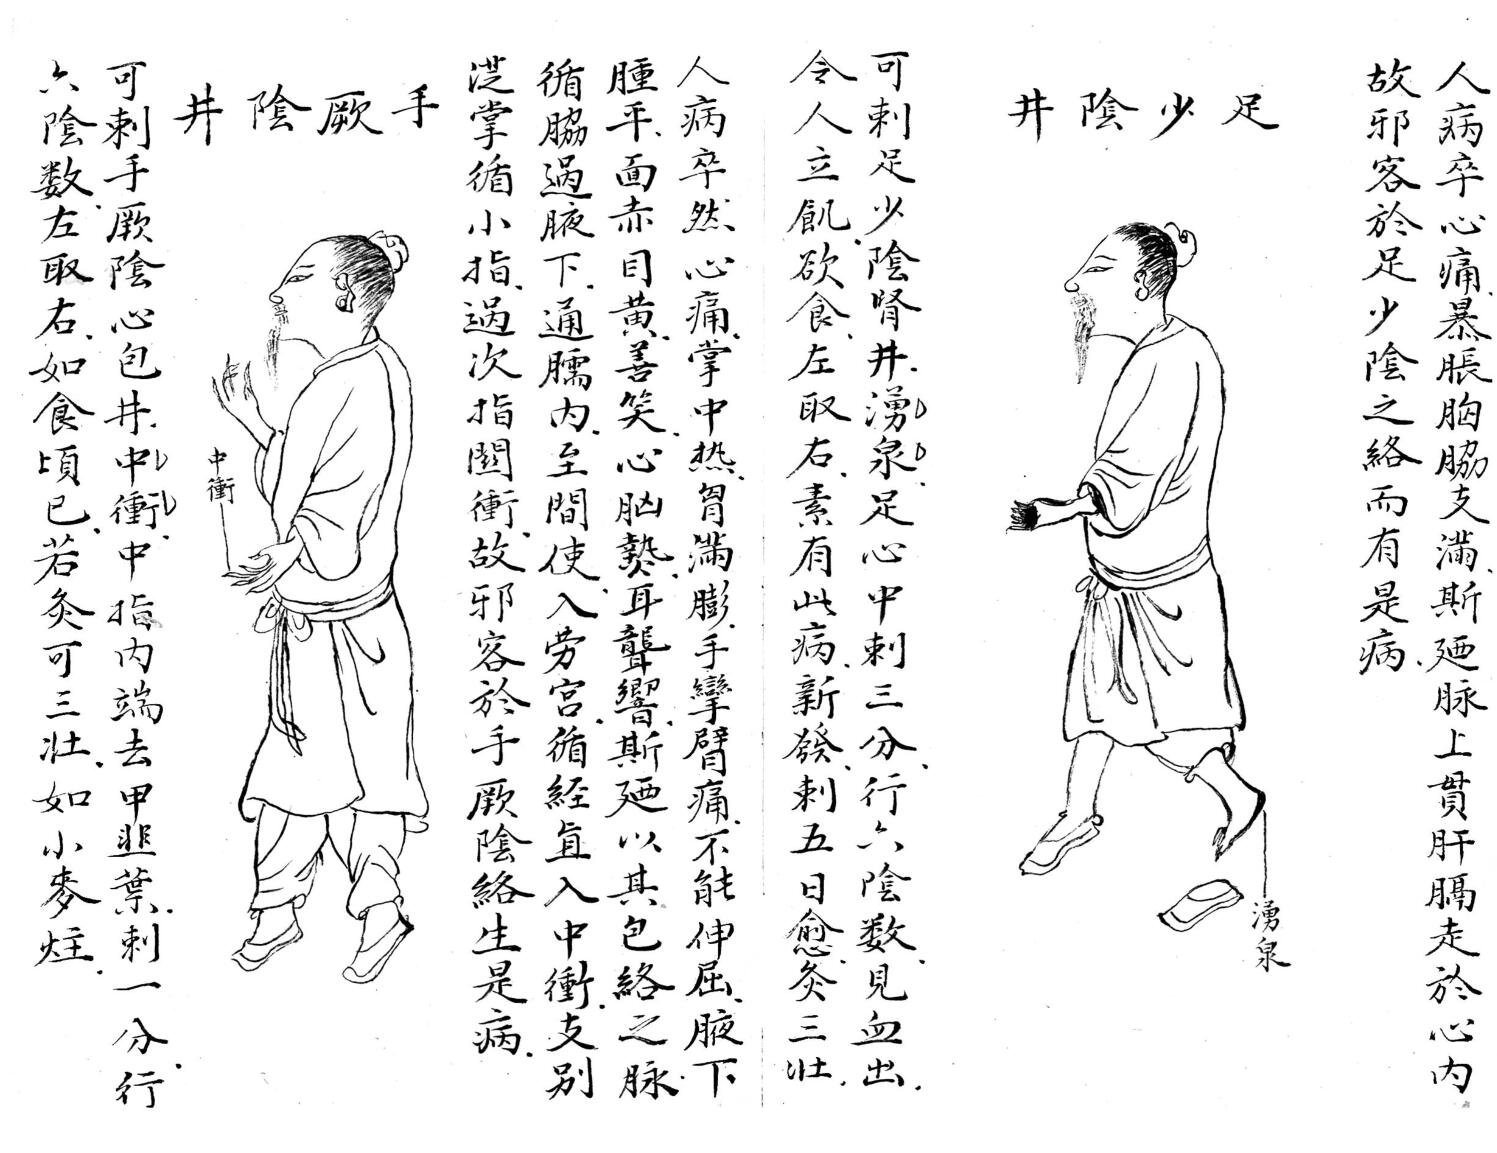 人病卒心痛暴脹胸脇支滿斯廼脉上貫肝膈走於心内
故邪客於足少陰之絡而有是病
足少陰井
湧泉
可刺足少陰腎井湧泉足心中刺三分行六陰数見血出
令人立飢欲食左取右素有此病新發刺五日愈灸三壯
人病卒然心痛掌中热胷滿膨手攣臂痛不能伸屈腋下
腫平面赤目黄善笑心胸熱耳聾響斯廼以其包絡之脉
循脇過腋下通臑内至間使入劳宮循経直入中衝支别
從掌循小指過次指關衝故邪客於手厥陰絡生是病
手厥陰井
中衝
可刺手厥陰心包井中衝中指内端去甲韭葉刺一分行
六陰数左取右如食頃已若灸可三壯如小麥炷